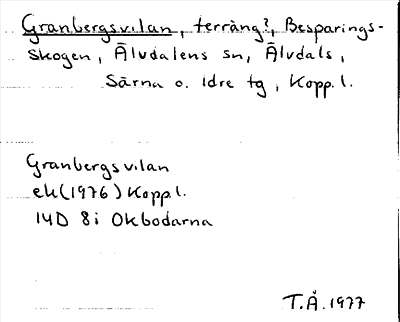 Granbergsvilan, terräng?, Besparings-
skogen, Älvdalens sn, Älvdals,
Särna o. Idre tg, Kopp.l.
Granbergsvilan
ek(1976) Kopp.l.
14D 8i Okbodarna
T.Å. 1977